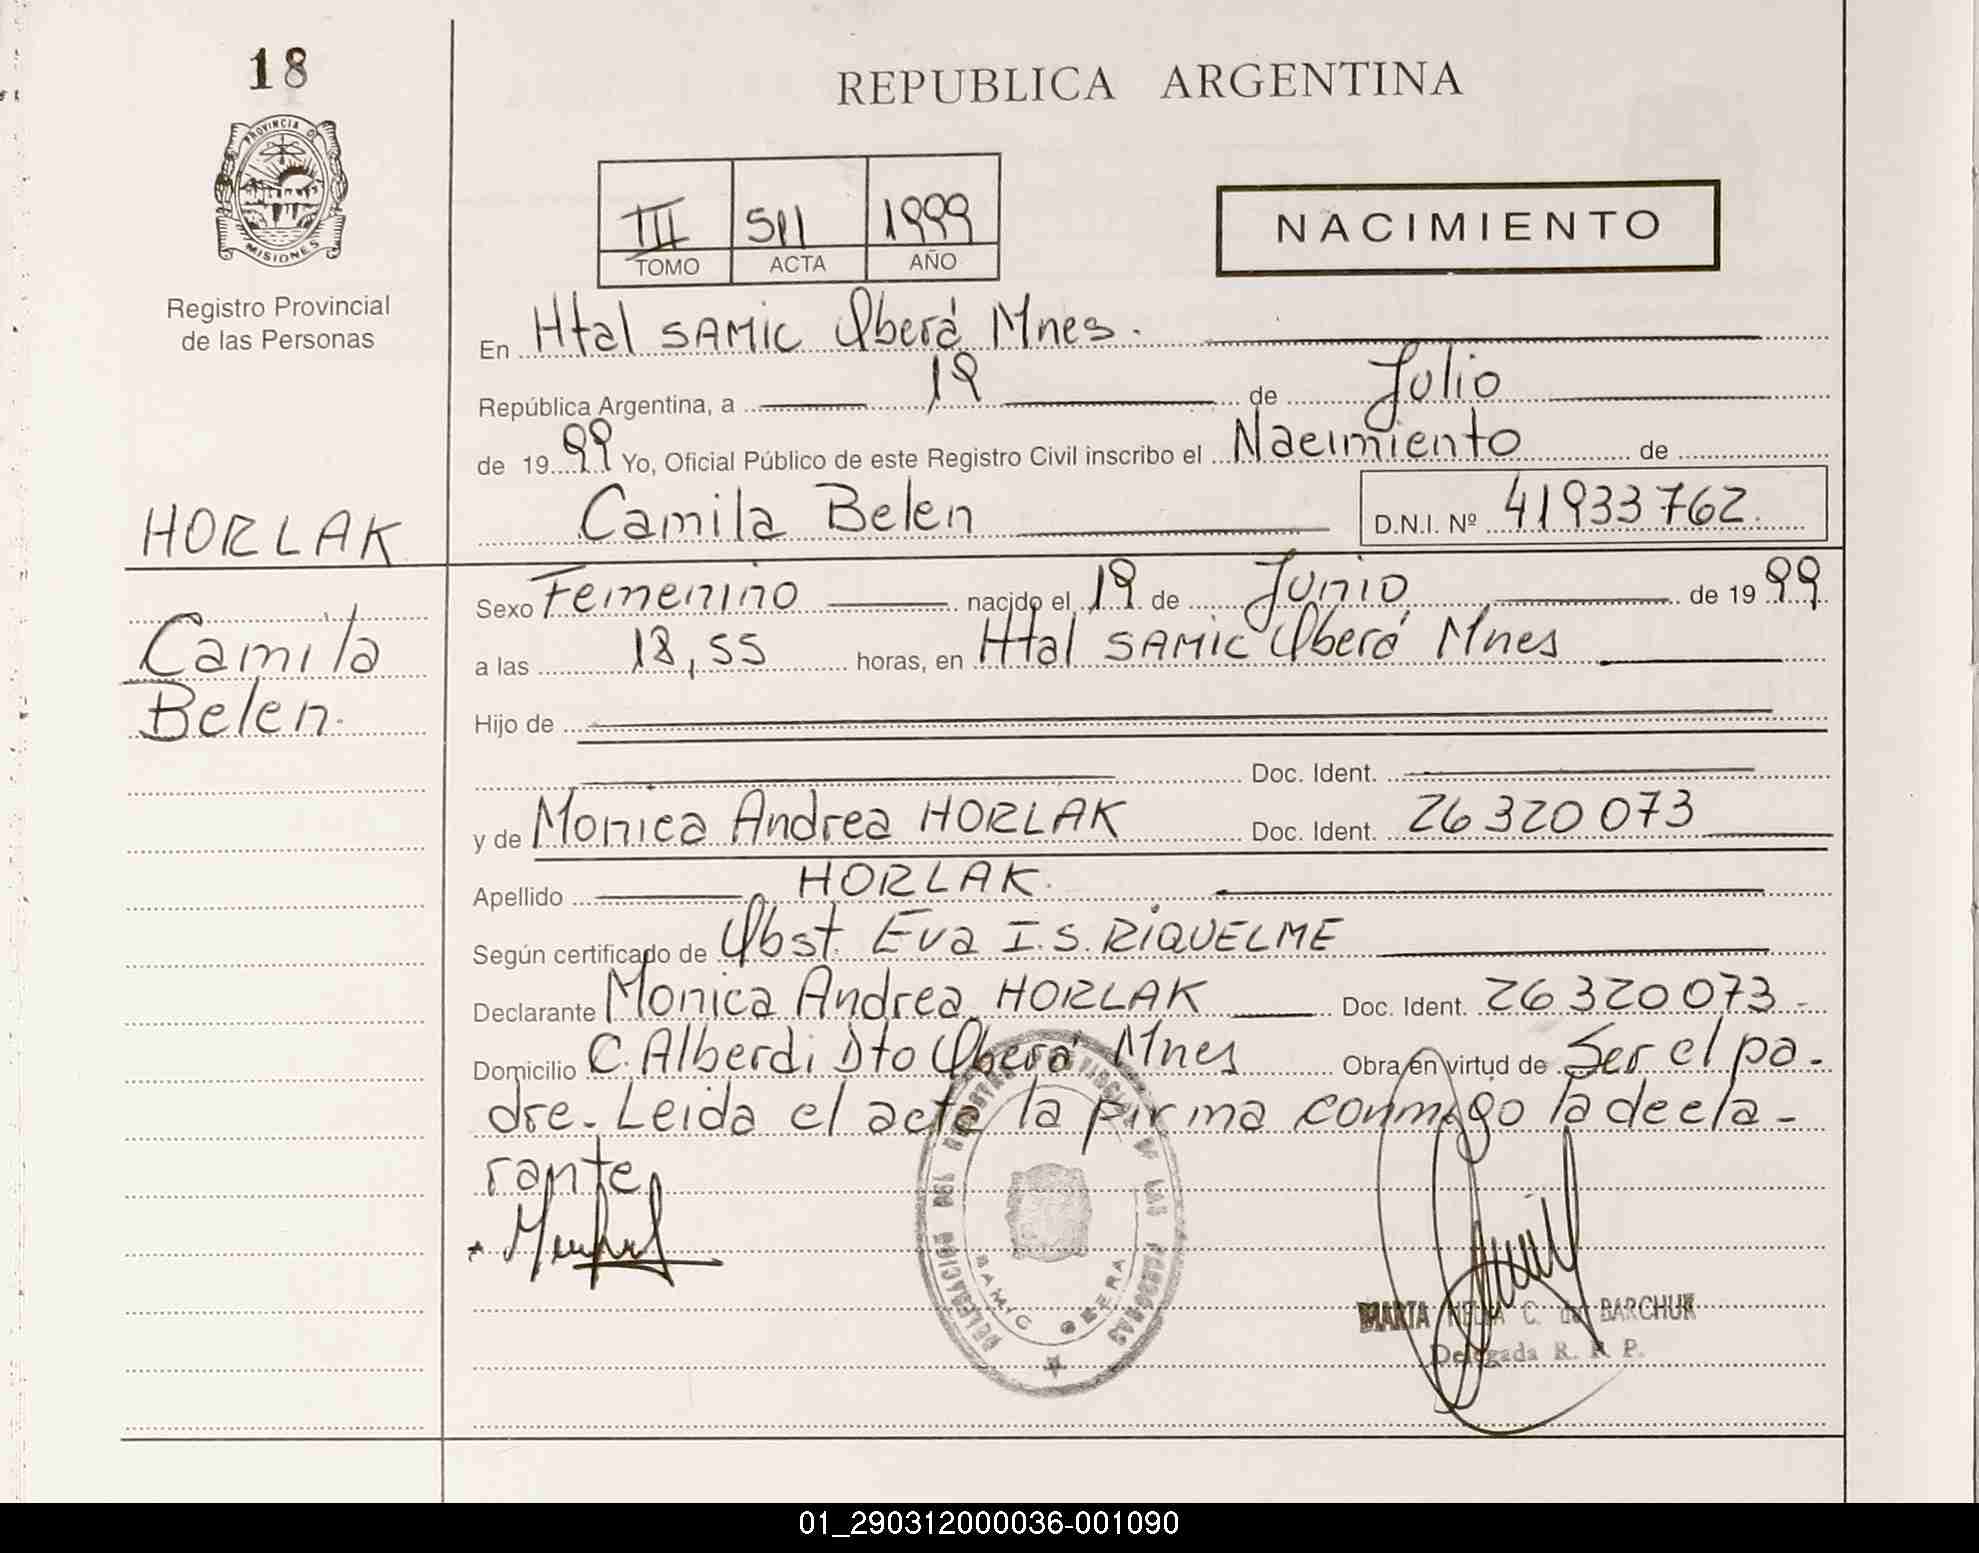 18
REPUBLICA ARGENTINA
PROVINCIA DE
MISIONES
Registro Provincial
de las Personas
III 511 1999
TOMO ACTA AÑO
NACIMIENTO
En Htal SAMIC Oberá Mnes.
República Argentina, a 19 de Julio
de 1999 Yo, Oficial Público de este Registro Civil inscribo el Nacimiento de
Camila Belen D.N.I. Nº 41933762.
HORLAK
Camila
Belen.
Sexo Femenino nacido el 19 de Junio de 1999
a las 18,55 horas, en Htal SAMIC Oberá Mnes
Hijo de
Doc. Ident.
y de Monica Andrea HORLAK Doc. Ident. 26320073
Apellido HORLAK.
Según certificado de Obst. Eva I.S. RIQUELME
Declarante Monica Andrea HORLAK Doc. Ident. 26320073-
Domicilio C. Alberdi Dto Oberá Mnes Obra en virtud de Ser el pa-
dre. Leida el acta la firma conmigo la decla-
rante
DELEGACION DEL REGISTRO PROVINCIAL DE LAS PERSONAS
SAMIC OBERA
MARTA NELIA C. de BARCHUK
Delegada R. P. P.
01_290312000036-001090